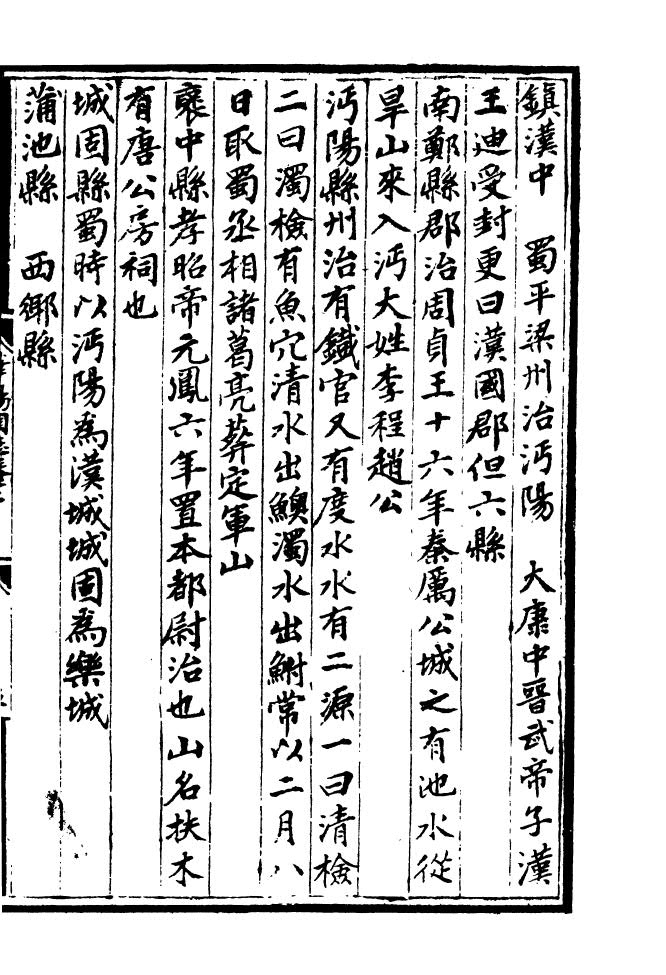 鎮漢中　蜀平梁州治沔陽　大康中晉武帝子漢
王迪受封更曰漢國郡但六縣
南鄭縣郡治周貞王十六年秦厲公城之有池水從
旱山來入沔大姓李程趙公
沔陽縣州治有鐵官又有度水水有二源一曰清檢
二曰濁檢有魚穴清水出鱮濁水出鮒常以二月八
日取蜀丞相諸葛亮葬定軍山
褒中縣孝昭帝元鳳六年置本都尉治也山名扶木
有唐公房祠也
城固縣蜀時以沔陽為漢城城固為樂城
蒲池縣　西鄉縣